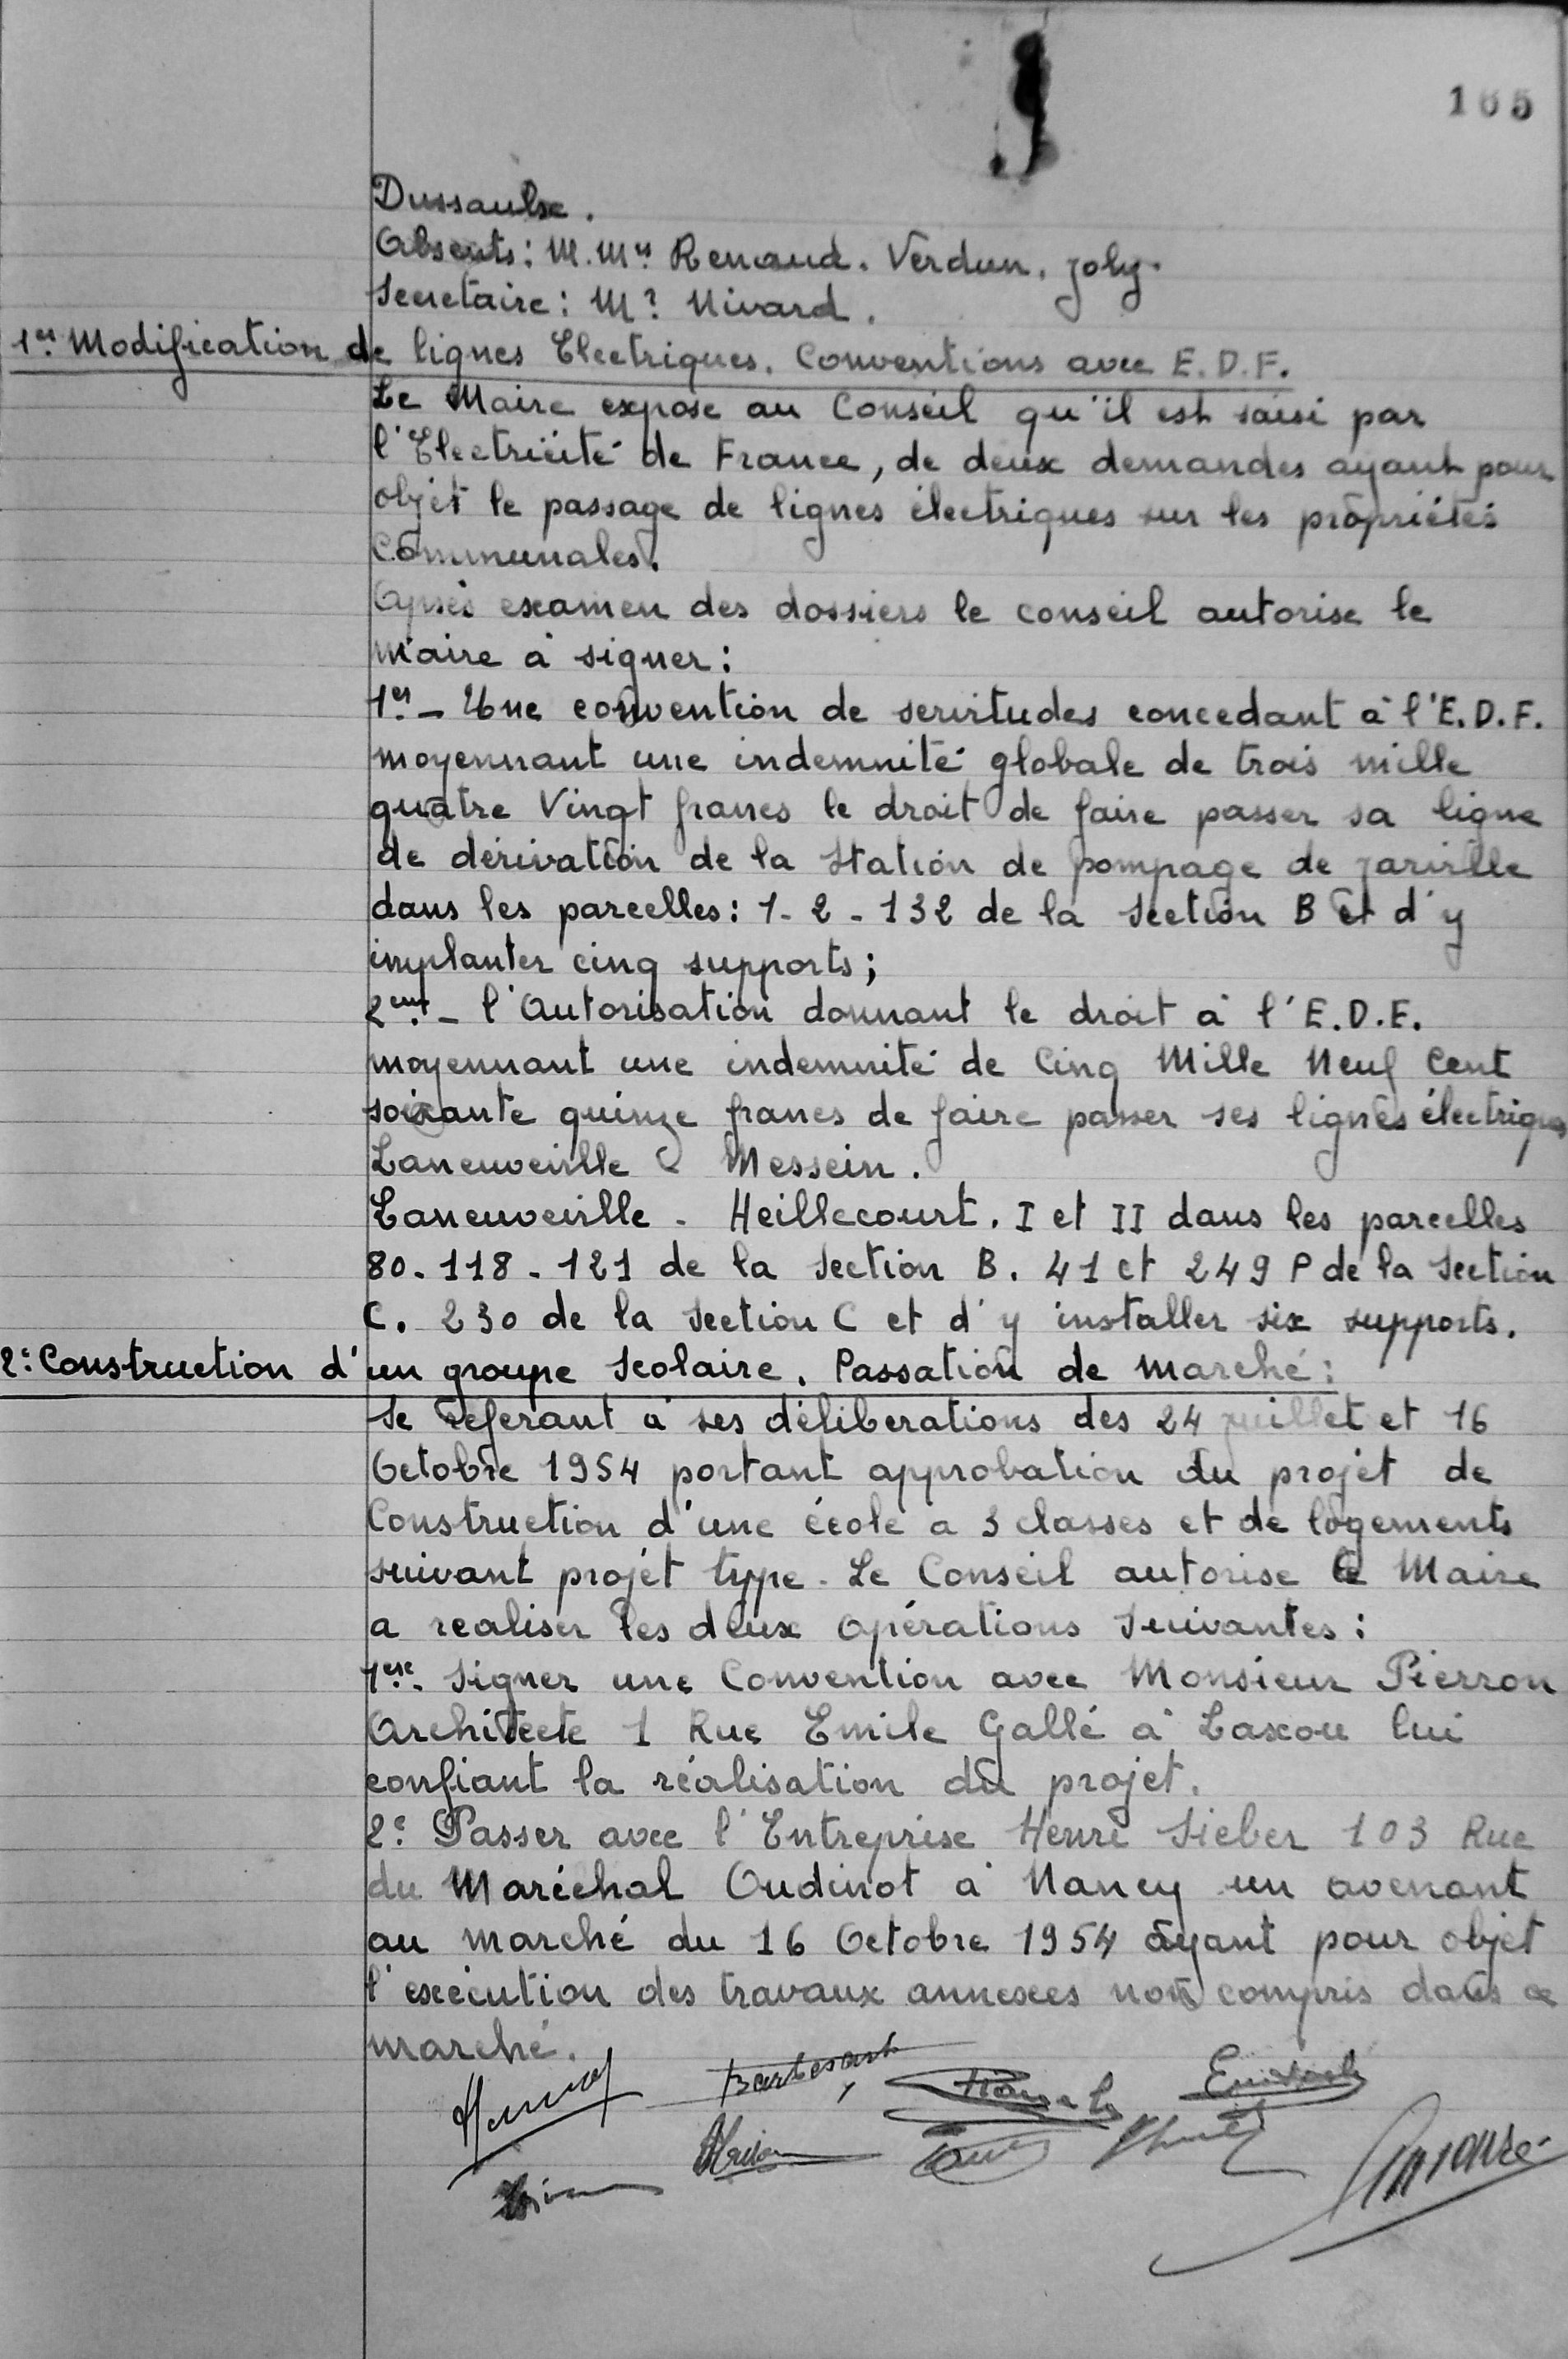 165
Dussaulx.
Absents: M.Mrs Renaud. Verdun. Joly.
Secretaire: Mr Nivard.
1er Modification de lignes Electriques. Conventions avec E.D.F.
Le Maire expose au Conseil qu'il est saisi par
l'Electricité de France, de deux demandes ayant pour
objet le passage de lignes électriques sur les propriétés
Communales.
Après examen des dossiers le conseil autorise le
Maire à signer:
1er - Une convention de servitudes concedant à l'E.D.F.
moyennant une indemnité globale de trois mille
quatre Vingt francs le droit de faire passer sa ligne
de dérivation de la Station de pompage de Jarville
dans les parcelles: 1-2-132 de la Section B et d'y
implanter cinq supports;
2emt - l'Autorisation donnant le droit à l'E.D.F.
moyennant une indemnité de Cinq Mille Neuf Cent
soixante quinze francs de faire passer ses lignes électriques
Laneuveville Messein.
Laneuveville - Heillecourt. I et II dans les parcelles
80.118-121 de la Section B. 41 et 249 P de la Section
C. 230 de la Section C et d'y installer six supports.
2: Construction d'un groupe Scolaire. Passation de Marché:
Se referant à ses déliberations des 24 juillet et 16
Octobre 1954 portant approbation du projet de
Construction d'une école a 3 classes et de logements
suivant projet type. Le Conseil autorise le Maire
a realiser les deux opérations Suivantes:
1ere. Signer une Convention avec Monsieur Pierron
Architecte 1 Rue Emile Gallé à Laxou lui
confiant la réalisation du projet.
2e. Passer avec l'Entreprise Henri Sieber 103 Rue
du Maréchal Oudinot à Nancy un avenant
au marché du 16 Octobre 1954 ayant pour objet
l'exécution des travaux annexes non compris dans ce
marché.